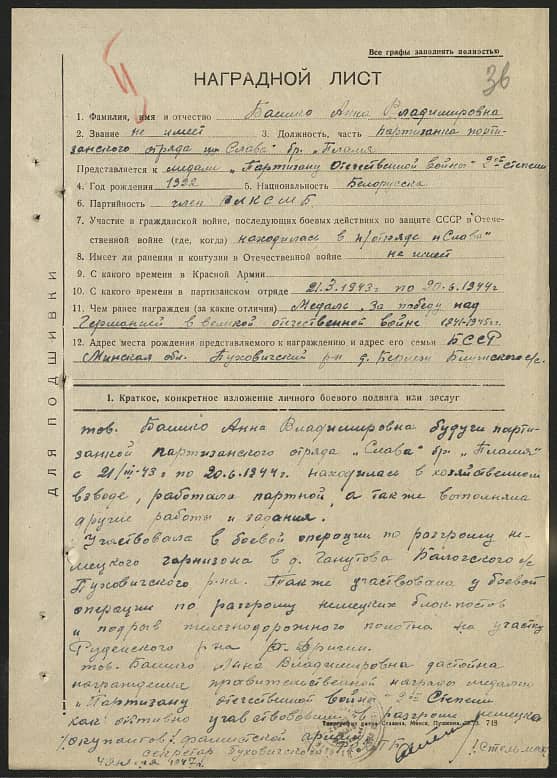 Все графы заполнять полностью
36
НАГРАДНОЙ ЛИСТ
1. Фамилия, имя и отчество Башко Анна Владимировна
2. Звание не имеет 3. Должность, часть партизанка парти-
занского отряда „Слава" бр. „Пламя"
Представляется к медали „Партизану Отечественной войны" 2ой степени
4. Год рождения 5. Национальность Белорусска
6. Партийность член ВЛКСМБ
7. Участие в гражданской войне, последующих боевых действиях по защите СССР в Отече-
ственной войне (где, когда) находилась в п/отряде „Слава"
8. Имеет ли ранения и контузии в Отечественной войне не имеет
9. С какого времени в Красной Армии
10. С какого времени в партизанском отряде 21.3.1943г по 20.6.1944г
11. Чем ранее награжден (за какие отличия) Медаль „За победу над
Германией в великой отечественной войне 1941-1945г.
12. Адрес места рождения представляемого к награждению и адрес его семьи БССР
Минская обл. Пуховичский р-н д. с/с.
ДЛЯ ПОДШИВКИ
I. Краткое, конкретное изложение личного боевого подвига или заслуг
тов. Башко Анна Владимировна будучи парти-
занкой партизанского отряда „Слава" бр „Пламя"
с 21/III-43 г по 20.6.1944г. находилась в хозяйственном
взводе, работала а также выполняла
другие работы и задания.
Участвовала в боевой операции по разгрому не-
мецкого гарнизона в д. с/с
Пуховичского р-на. Также участвовала у боевой
операции по разгрому немецких блок-постов
и подрыв железнодорожного полотна на участку
Руденского р-на
тов. Башко Анна Владимировна достойна
награждения правительственной награды медали
„Партизану отечественной войны" 2ой Степени
как активно участвовавшая в разгроме немецко
фашистской армии
Секретарь Пуховичского
1947г.